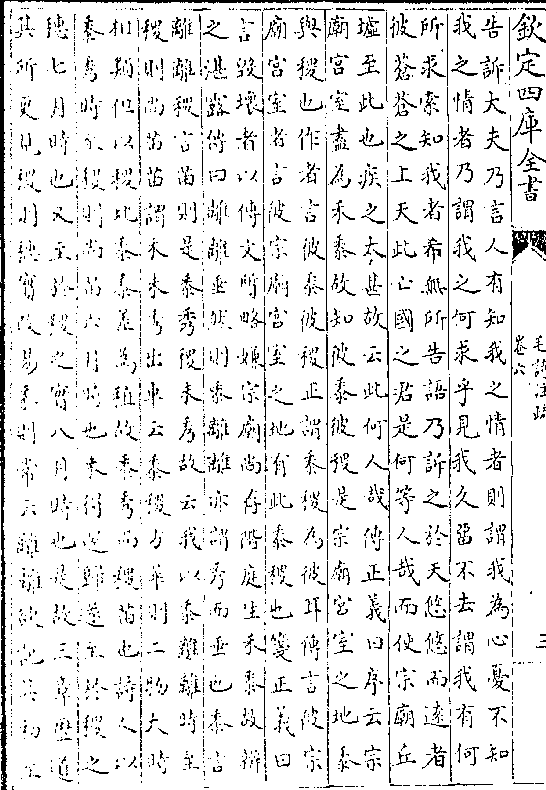 欽定四庫全書
毛詩注疏
卷六
三
告訴大夫乃言人有知我之情者則謂我為心憂不知
我之情者乃謂我之何求乎見我久留不去謂我有何
所求索知我者希無所告語乃訴之於天悠悠而遠者
彼蒼蒼之上天此亡國之君是何等人哉而使宗廟丘
墟至此也疾之太甚故云此何人哉傳正義曰序云宗
廟宮室盡為禾黍故知彼黍彼稷是宗廟宮室之地黍
與稷也作者言彼黍彼稷正謂黍稷為彼耳傳言彼宗
廟宮室者言彼宗廟宮室之地有此黍稷也箋正義曰
言毀壞者以傳文所略嫌宗廟尚存階庭生禾黍故辨
之湛露傳曰離離垂然則黍離離亦謂秀而垂也黍言
離離稷言苗則是黍秀稷未秀故云我以黍離離時至
稷則尚苗苗謂禾未秀出車云黍稷方華則二物大時
相類但以稷比黍黍差為稙故黍秀而稷苗也詩人以
黍秀時至稷則尚苗六月時也未得還歸遂至於稷之
穗七月時也又至於稷之實八月時也是故三章歷道
其所更見稷則穗實改易黍則常云離離欲記其初至